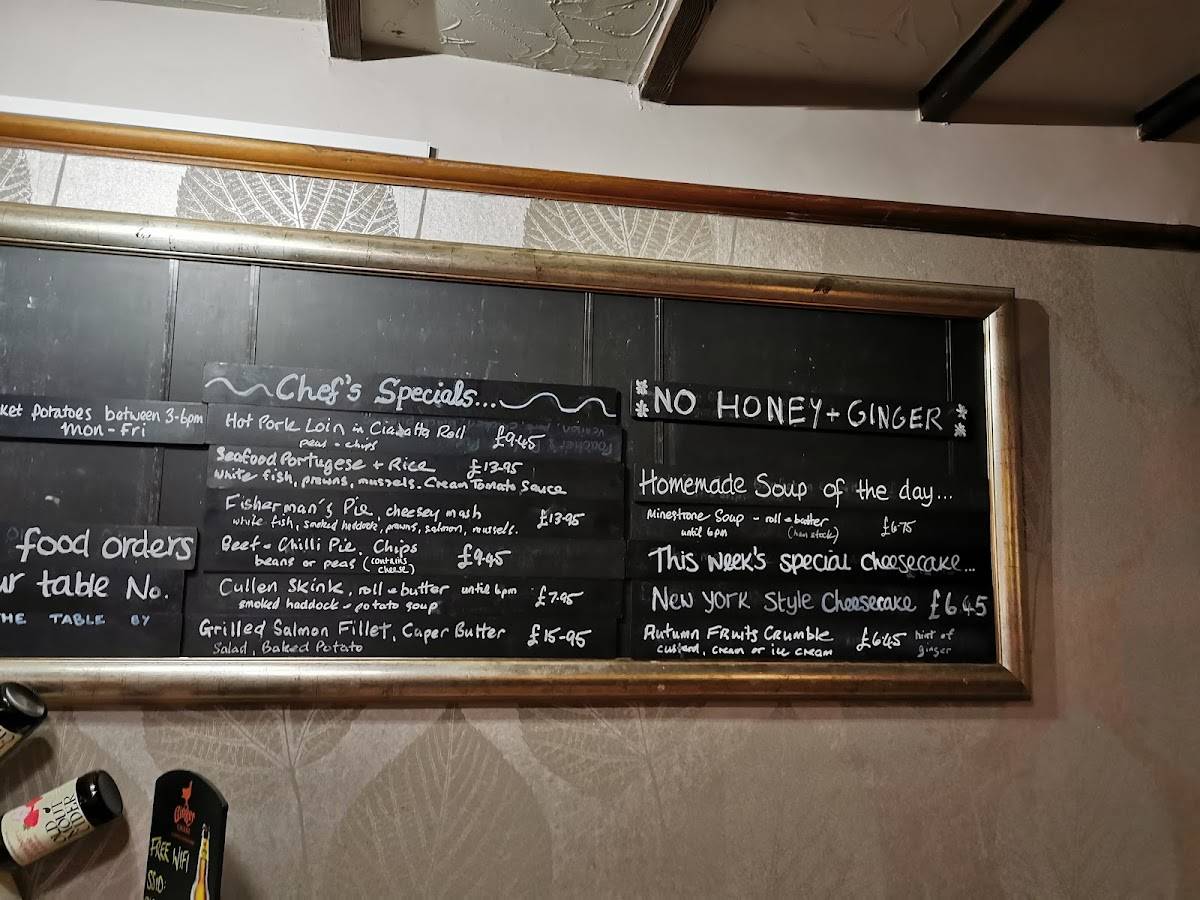 ket potatoes between 3-6pm
Mon-Fri
food orders
ur table No.
HE TABLE BY
Chef's Specials...
Hot Pork Loin in Ciabatta Roll £9.45
peas + chips
Seafood Portugese + Rice £13.95
white fish, prawns, mussels. Cream Tomato Sauce
Fisherman's Pie, cheesey mash £13.95
white fish, smoked haddock, prawns, salmon, mussels.
Beef + Chilli Pie, Chips £9.45
beans or peas (contains cheese)
Cullen Skink, roll + butter until 6pm £7.95
smoked haddock + potato soup
Grilled Salmon Fillet, Caper Butter £15-95
Salad, Baked Potato
NO HONEY + GINGER
Homemade Soup of the day...
Minestrone Soup - roll + butter £6.75
until 6pm (ham stock)
This week's special cheesecake...
New York Style Cheesecake £6.45
Autumn Fruits Crumble £6.45 hint of
custard, cream or ice cream ginger
OLD
MOUT
CIDER
FREE WIFI
SSID: